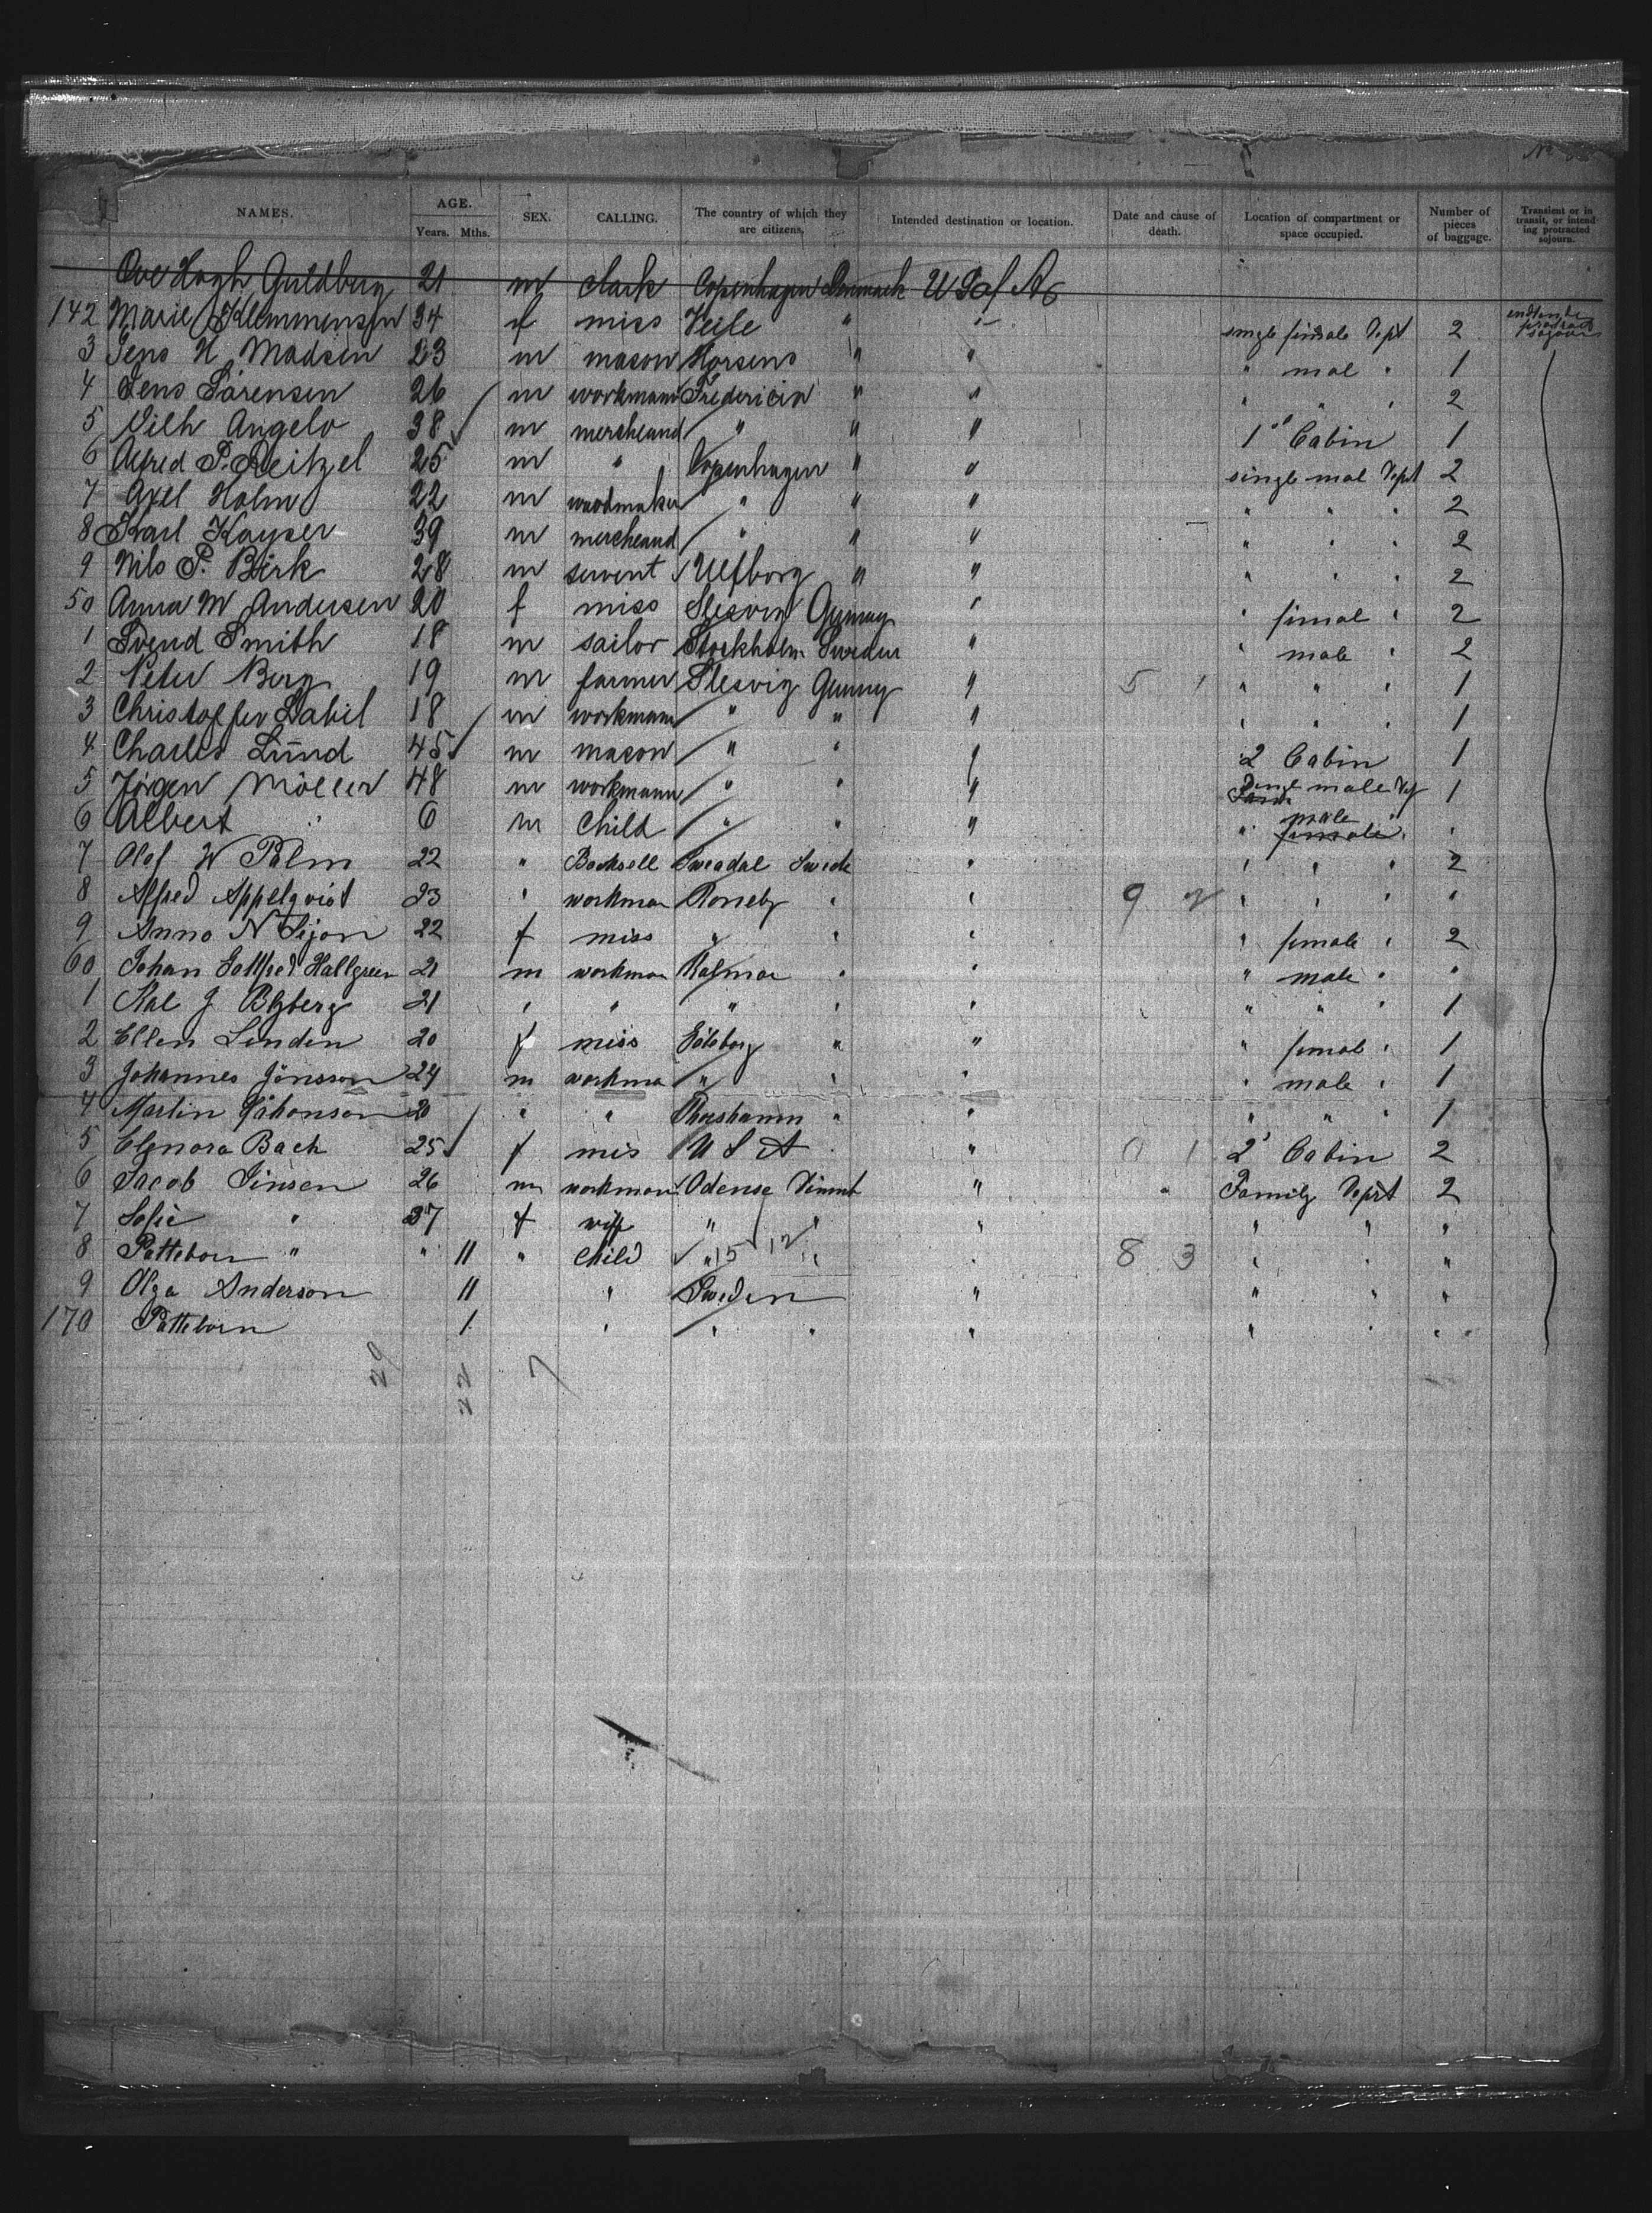 No
NAMES. AGE. Years. Mths. SEX. CALLING. The country of which they are citizens. Intended destination or location. Date and cause of death. Location of compartment or space occupied. Number of pieces of baggage. Transient or in transit, or intending protracted sojourn.
Ove Hogh Guldberg 21 m clark Copenhagen Danmark U S of A
142 Marie Klemmensen 34 f miss Veile " " single female Dept 2
3 Jens N Madsen 23 m mason Horsens " " " mal " 1
4 Jens Sörensen 26 m workmann Fredericia " " " " " 2
5 Vilh Angelo 38 m mercheand " " " 1st Cabin 1
6 Alfred P. Reitzel 25 m " Copenhagen " " single mal Dept 2
7 Axel Holm 22 m woodmaker " " " " " " 2
8 Karl Kayser 39 m mercheand " " " " " " 2
9 Nils P. Birk 28 m servent Ulfborg " " " " " 2
50 Anna M Andersen 20 f miss Slesvig Germny " " fimal " 2
1 Svend Smith 18 m sailor Stockholm Sweden " " male " 2
2 Peter Berg 19 m farmer Slesvig Germny " 5 1 " " " 1
3 Christoffer 18 m workmann " " " " " " 1
4 Charles Lund 45 m mason " " " 2 Cabin 1
5 Jörgen Möller 48 m workmann " " " male 1
6 Albert " 6 m Child " " " " male female " "
7 Olof W Palm 22 " Booksell Sweadal Swede " " " " 2
8 Alfred Appelqvist 23 " workman Roneby " " 9 2 " " " "
9 Anno N 22 f miss " " " " female " 2
60 Johan Gottfred Hallgreen 21 m workman Kalmar " " " male " "
1 Kal J 21 " " " " " " " " 1
2 Ellen Linden 20 f miss Göteborg " " " femal " 1
3 Johannes Jönsson 24 m workma " " " " male " 1
4 Martin Johanson 20 " " " " " " " 1
5 Elenora Bach 25 f mis U S A " 0 1 2' Cabin 2
6 Jacob Jinsen 26 m workman Odense " Family Deprt 2
7 Sofie " 27 f wiff " " " " " "
8 Patteborn " " 11 " Child " 15 12 " " 8 3 " " "
9 Olga Anderson 11 " Sweden " " " "
170 Patteborn 1 " " " " " " "
29 22 7